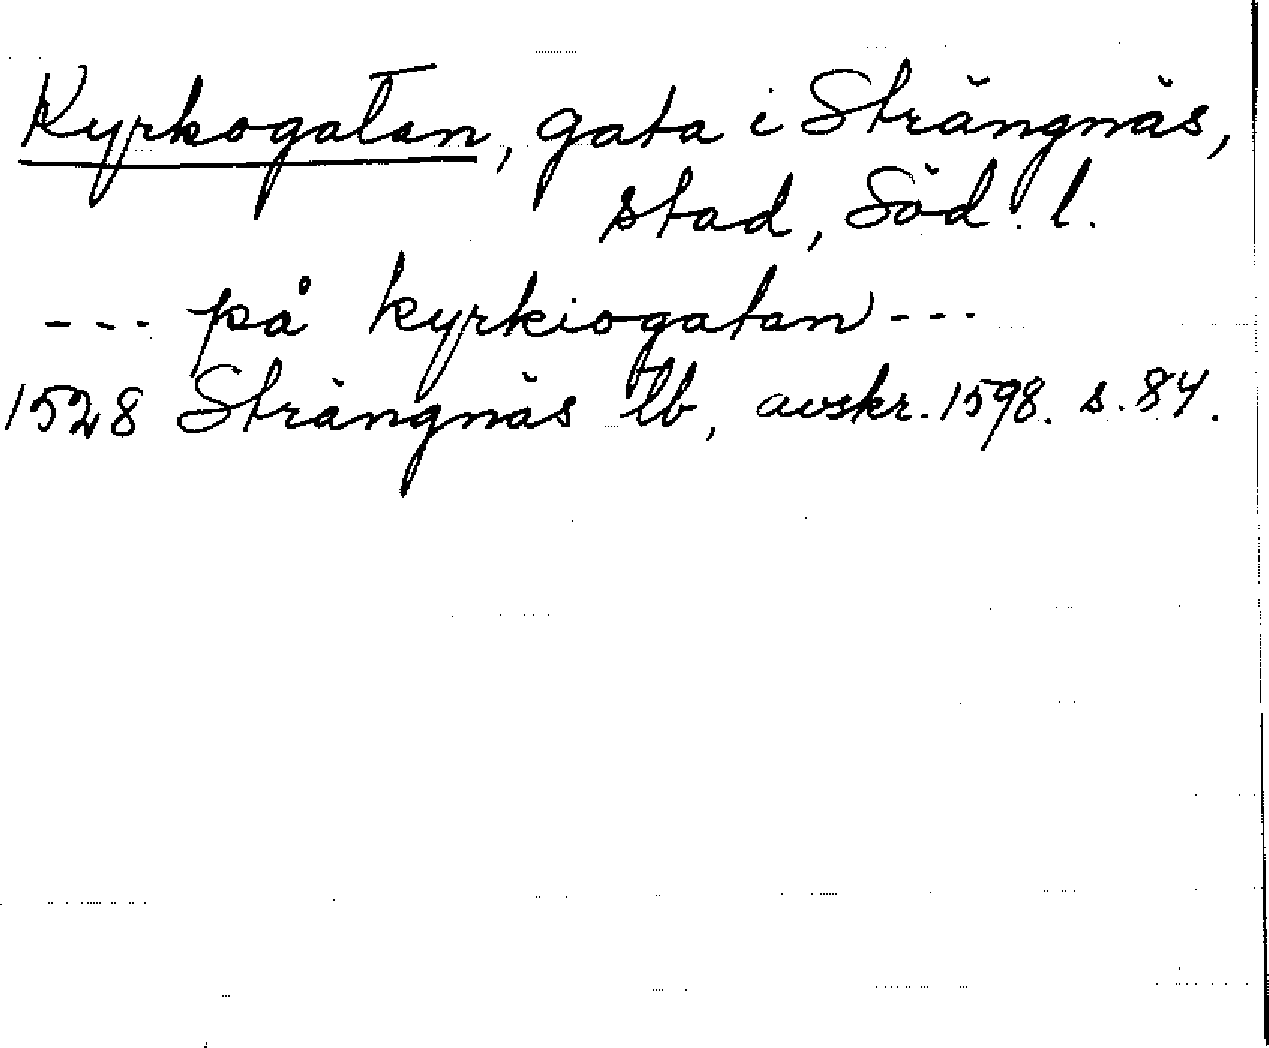 Kyrkogatan, gata i Strängnäs,
stad, Söd. l.
--- på kyrkiogatan ---
1528 Strängnäs tb, avskr. 1598. s. 84.